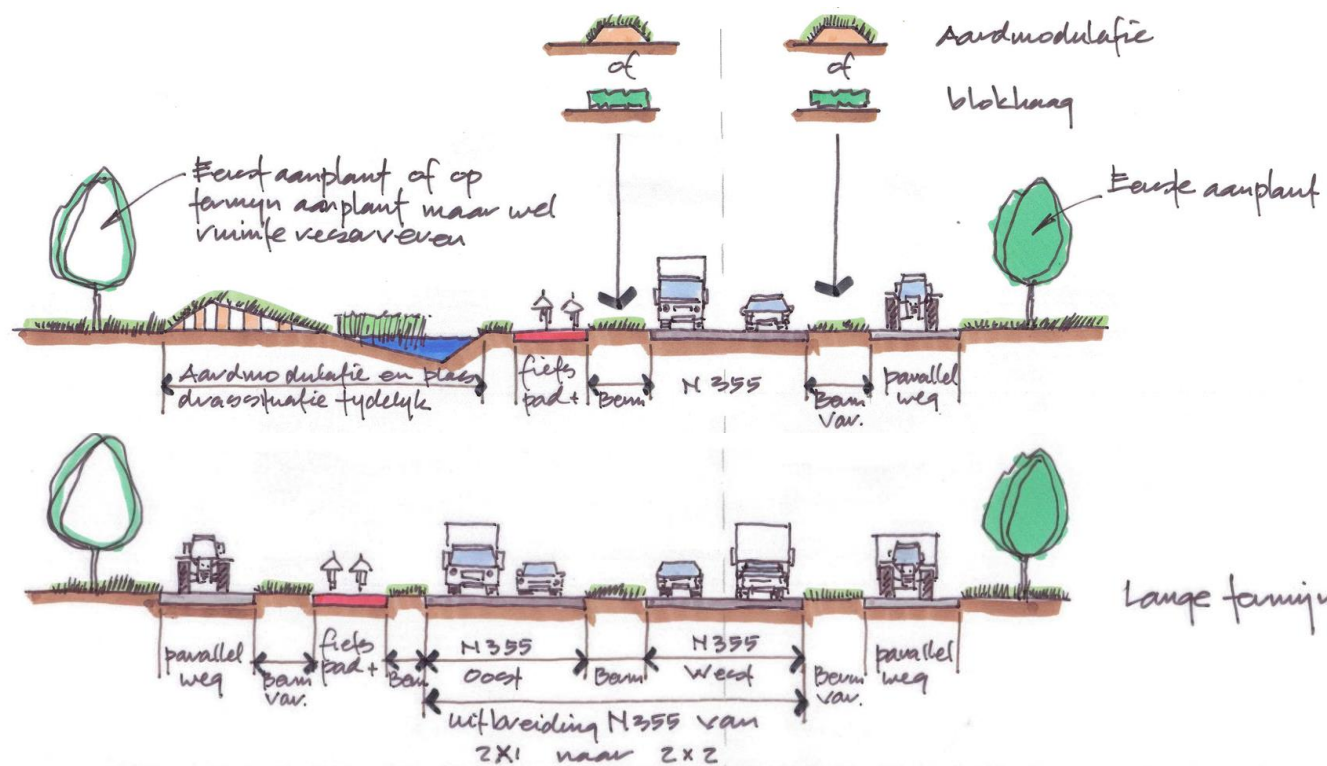 Aardmodulatie
of
of
blokhaag
Eerst aanplant of op
termijn aanplant maar wel
ruimte reserveren
Eerste aanplant
Aardmodulatie en plas
drassituatie tydelyk
fiets
pad+
Berm
N355
Berm
Var.
parallel
weg
Lange termijn
parallel
weg
Berm
var.
fiets
pad+
Berm
N355
Oost
Berm
N355
West
Berm
var.
parallel
weg
uitbreiding N355 van
2x1 naar 2x2